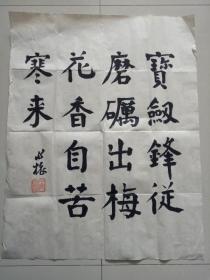 寶劔鋒從
磨礪出梅
花香自苦
寒来